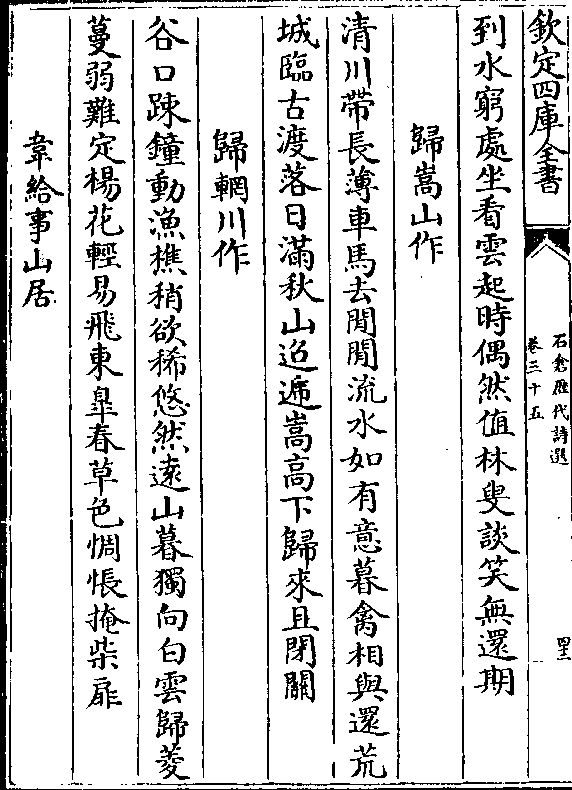 欽定四庫全書
石倉厯代詩選
卷三十五
到水窮處坐看雲起時偶然值林叟談笑無還期
歸嵩山作
清川帶長薄車馬去閒閒流水如有意暮禽相與還荒
城臨古渡落日滿秋山迢遞嵩高下歸來且閉關
歸輞川作
谷口踈鐘動漁樵稍欲稀悠然遠山暮獨向白雲歸菱
蔓弱難定楊花輕易飛東臯春草色惆悵掩柴扉
韋給事山居